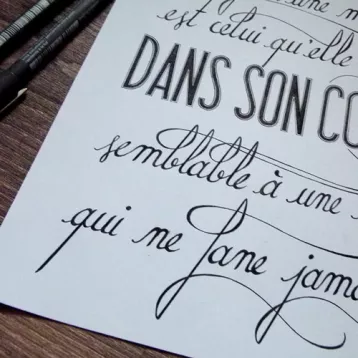 une
est celui qu'elle
DANS SON CO
semblable à une
qui ne fane jama